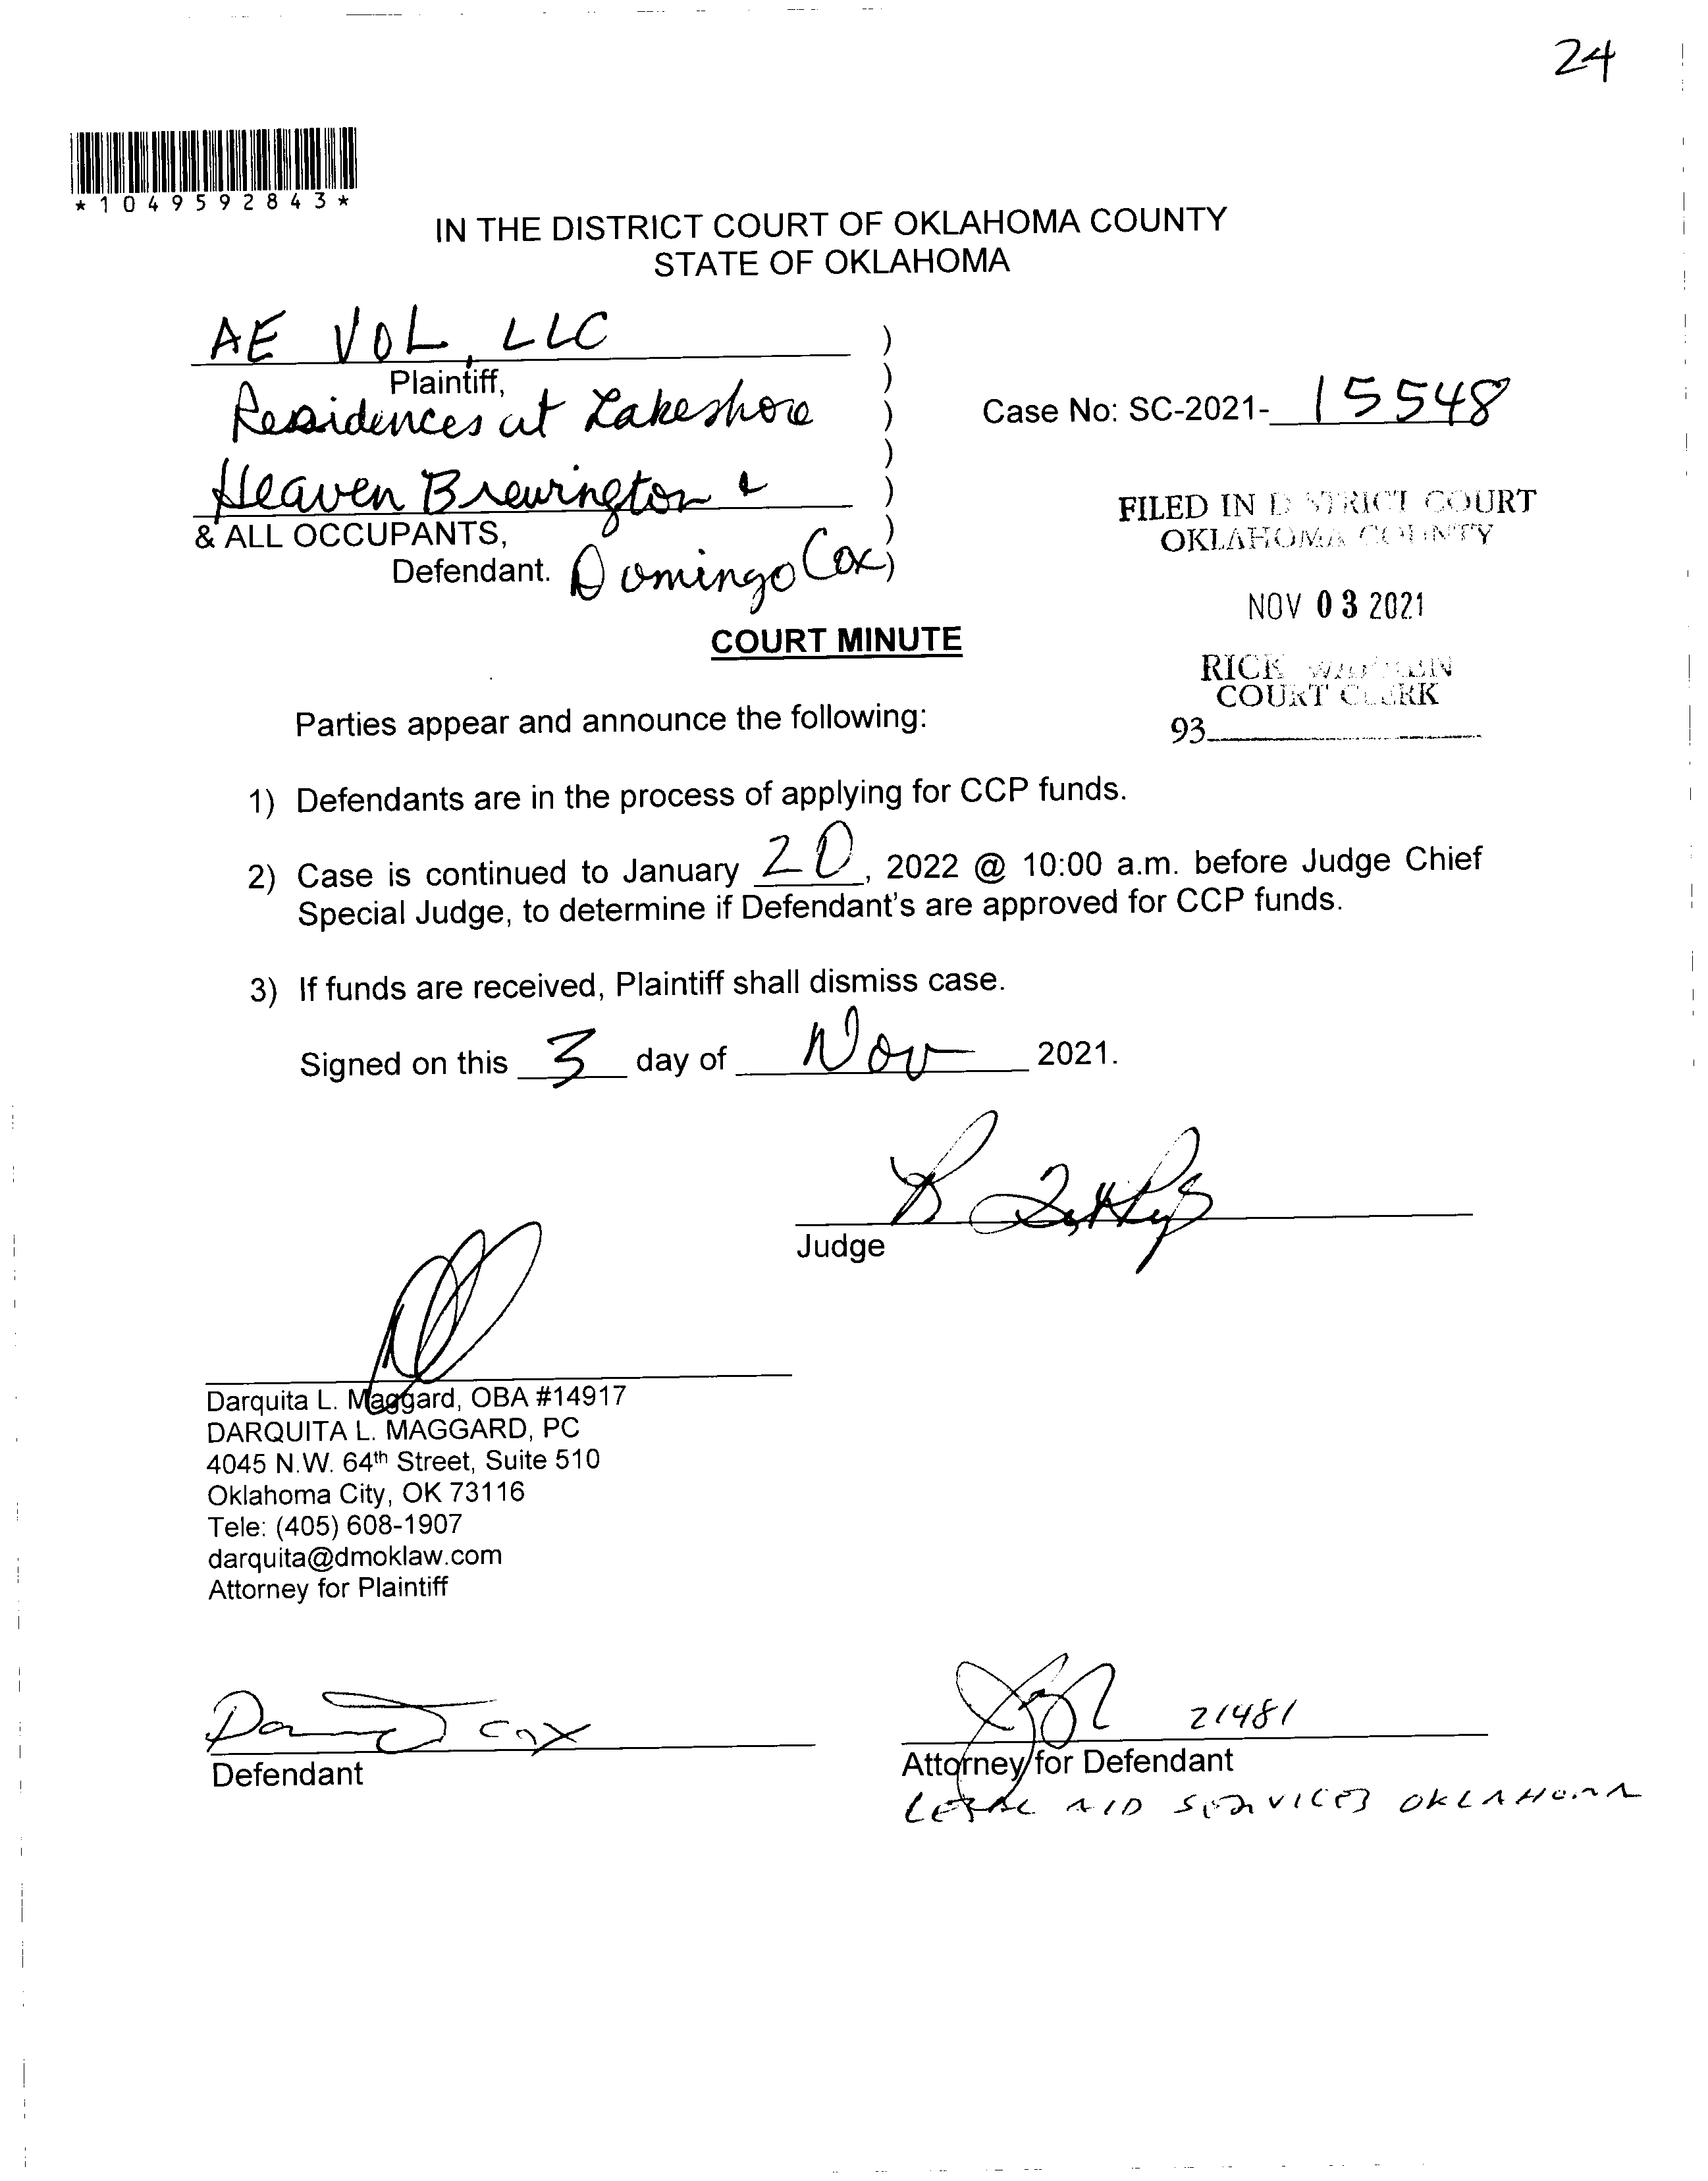 24
*1049592843*
IN THE DISTRICT COURT OF OKLAHOMA COUNTY
STATE OF OKLAHOMA
AE VOL, LLC )
Plaintiff, )
Residences at Lakeshore ) Case No: SC-2021- 15548
)
Heaven Brewington & )
& ALL OCCUPANTS, )
Defendant. Domingo Cox )
FILED IN DISTRICT COURT
OKLAHOMA COUNTY
NOV 03 2021
RICK WARREN
COURT CLERK
93
COURT MINUTE
Parties appear and announce the following:
1) Defendants are in the process of applying for CCP funds.
2) Case is continued to January 20, 2022 @ 10:00 a.m. before Judge Chief
Special Judge, to determine if Defendant's are approved for CCP funds.
3) If funds are received, Plaintiff shall dismiss case.
Signed on this 3 day of Nov 2021.
Judge
Darquita L. Maggard, OBA #14917
DARQUITA L. MAGGARD, PC
4045 N.W. 64th Street, Suite 510
Oklahoma City, OK 73116
Tele: (405) 608-1907
darquita@dmoklaw.com
Attorney for Plaintiff
Cox
Defendant
21481
Attorney for Defendant
LEGAL AID SERVICES OKLAHOMA